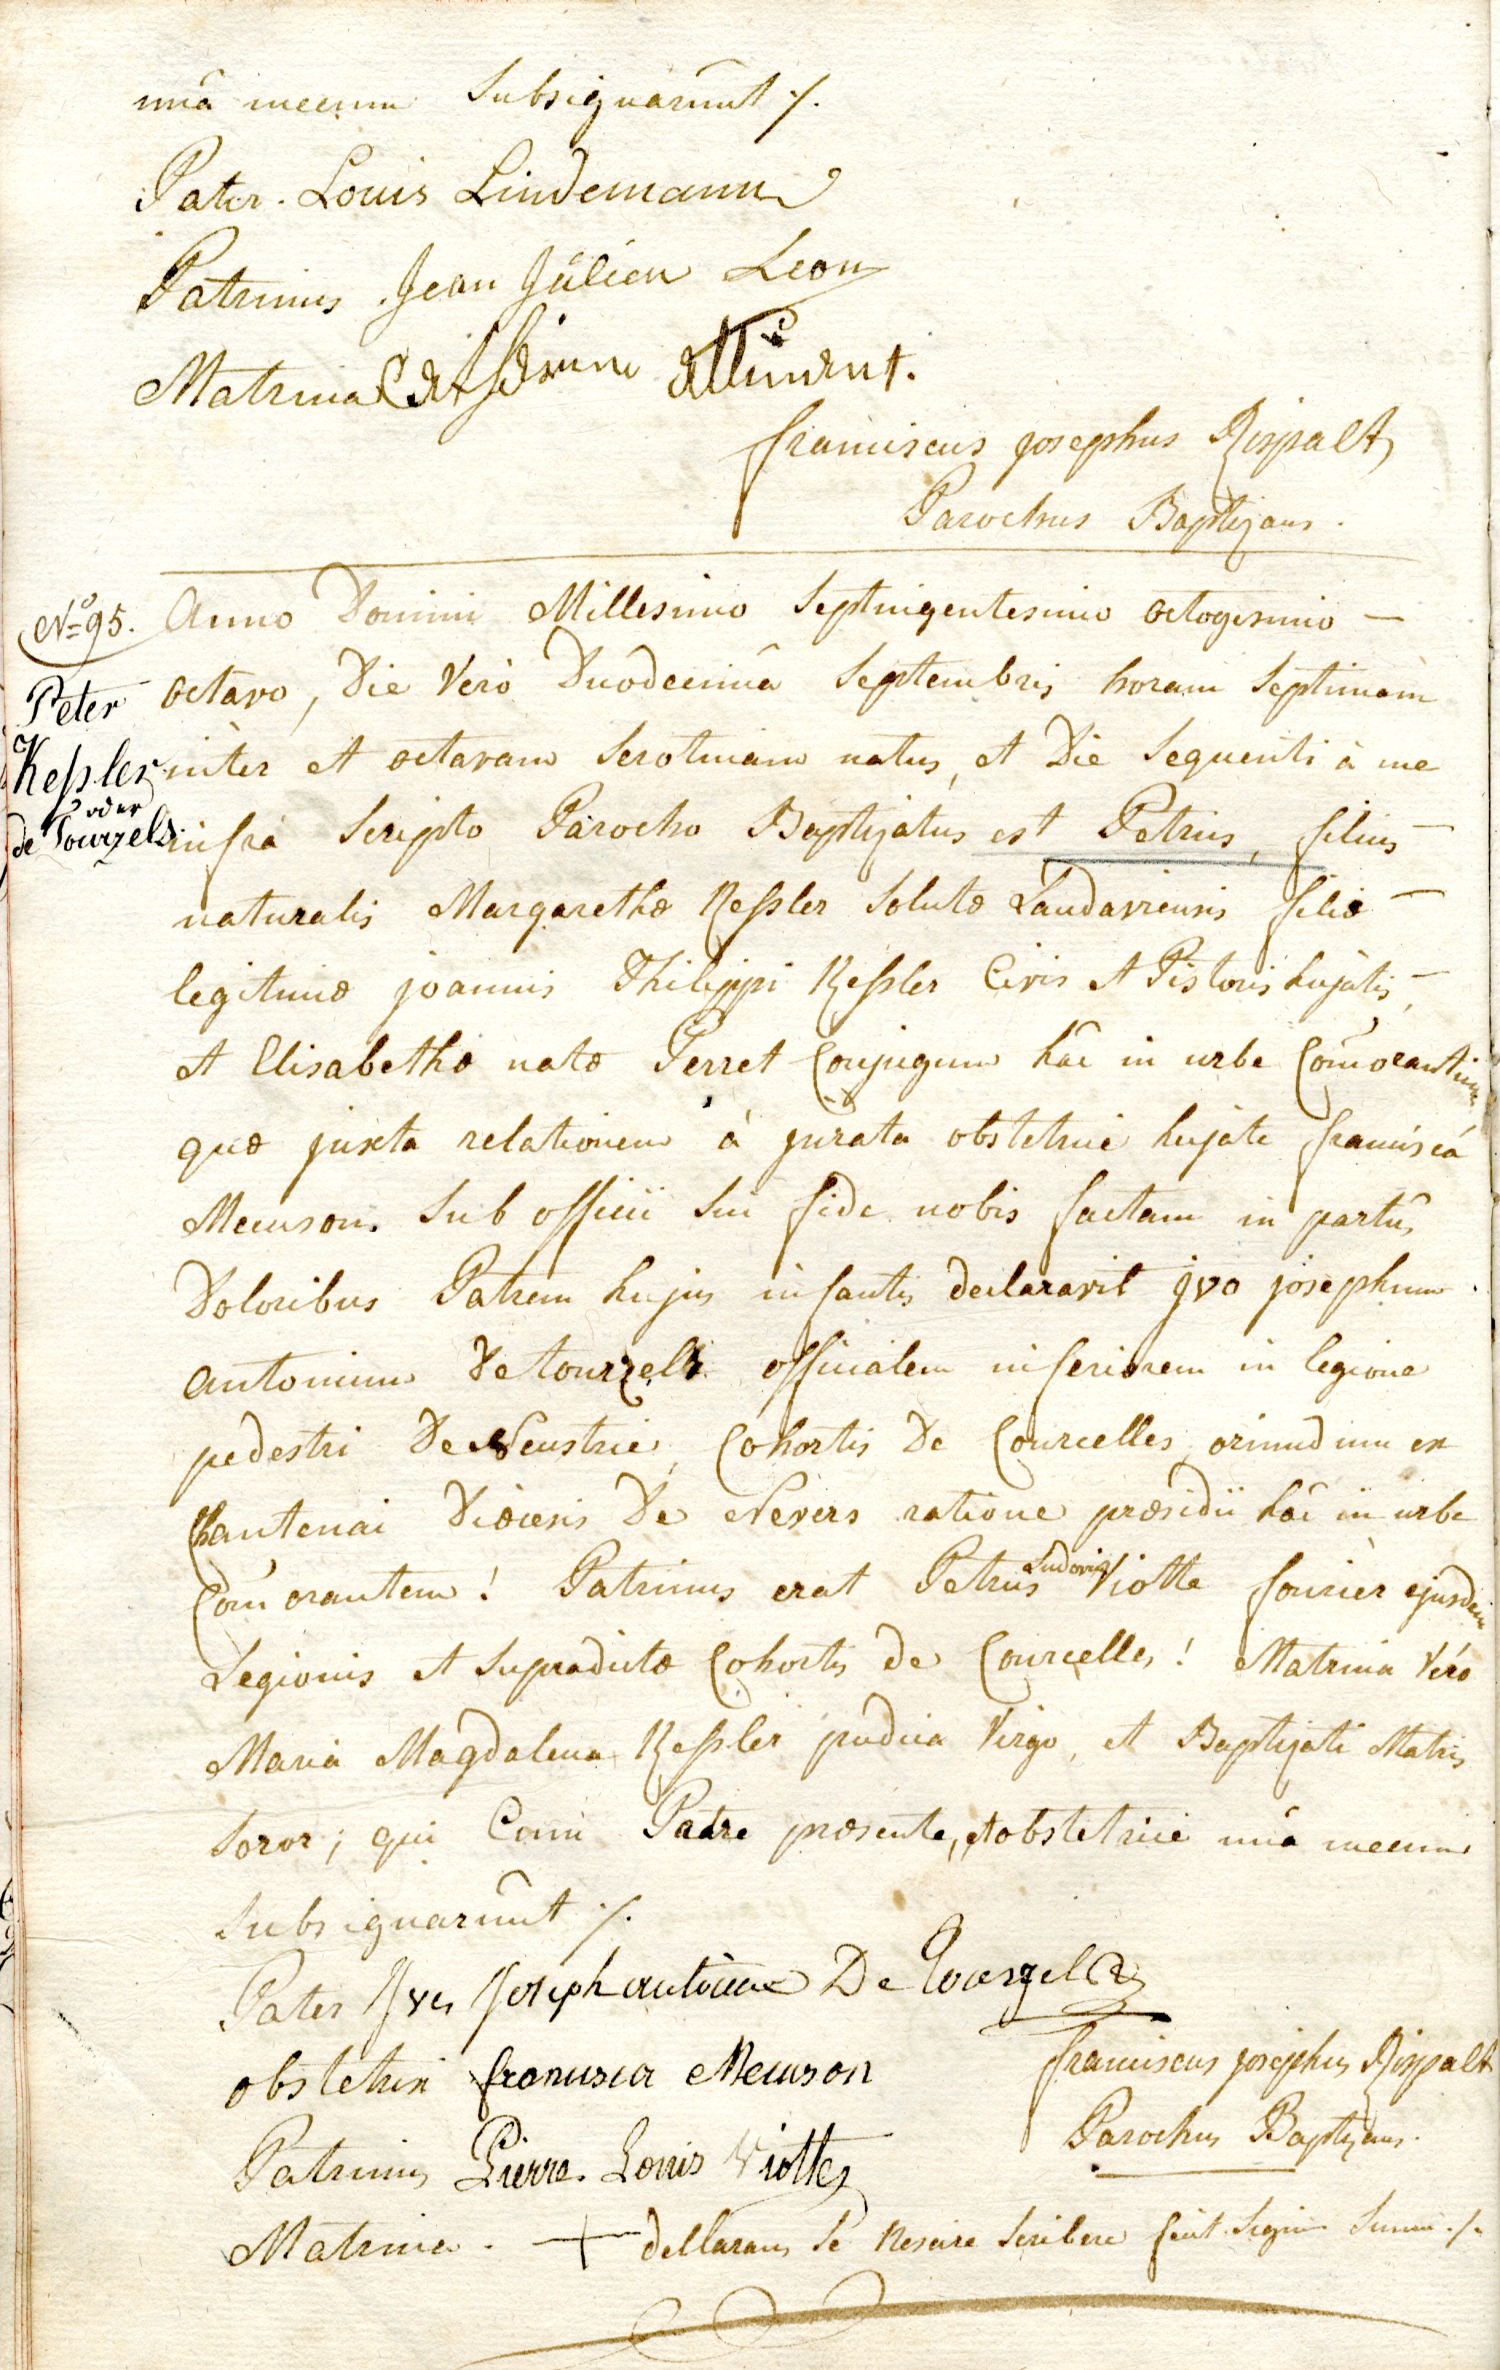 unâ mecum Subsignarûnt ·/.
Pater. Louis Lindemann
Patrinus Jean Jülien Leon
Matrina
franciscus josephus Rispalt
Parochus Baptizans.
No 95. Anno Domini Millesimo Septingentesimo octogesimo —
Peter octavo, Die Verò Duodecimâ Septembris horam Septimam
Keßler intèr et octavam Serotinam natus, et Die Sequenti à me
oder
de Tourzels infrà Scripto Parocho Baptizatus est Petrus, filius —
naturalis Margarethæ Keßler Solutæ Landaviensis filiæ —
legitimæ joannis Philippi Keßler Civis et Pistoris hujatis —
et Elisabethæ natæ Perret Conjugum hâc in urbe Com̄orantium,
quæ juxta relationem à jurata obstetrice hujate franciscâ
Meuson Sub officii Sui fide nobis factam in partûs
Doloribus Patrem hujus infantis declaravit jvo josephum
antonium De tourzels officialem inferiorem in legione
pedestri De Neustrie, Cohortis De Courcelles, oriundum ex
Chantenai Diœcesis De Nevers ratione præsidii hâc in urbe
Com̄orantem! Patrinus erat Petrus Ludovicus Viotte fourièr ejusdem
Legionis et Supradictæ Cohortis de Courcelles! Matrina Verò
Maria Magdalena Keßler pudica Virgo, et Baptizati Matris
Soror; qui Cum Patre præsente, et obstetrice unâ mecum
Subsignarûnt ·/.
Pater Yves Joseph antoine De Tourzel
obstetrix francisca Meuson
franciscus josephus Rispalt
Parochus Baptizans.
Patrinus Pierre Louis Viotte
Matrina. + declarans Se Nescire Scribere fecit Signum Suum ·/.